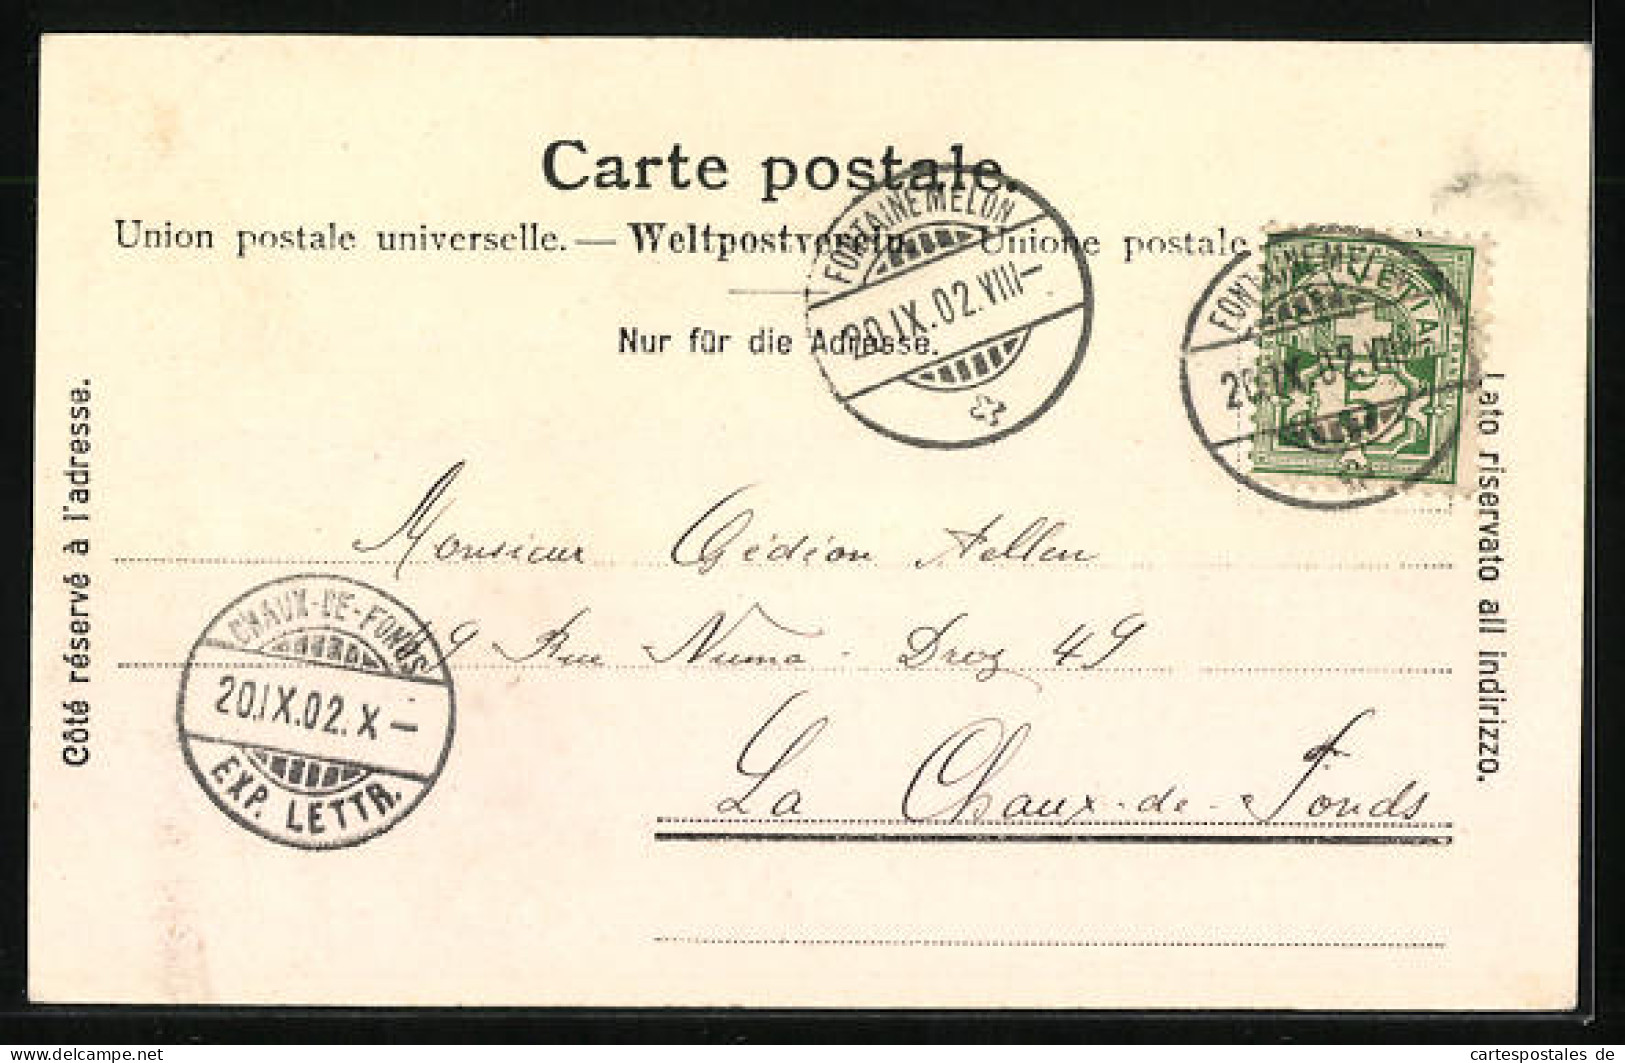 Carte postale.
Union postale universelle. — Weltpostverein. — Unione postale
Nur für die Adresse.
FONTAINEMELON
20.IX.02.VIII—
FONTAINEMELON
20.IX.02.VIII
HELVETIA
5
Côté réservé à l'adresse.
Lato riservato all indirizzo.
Monsieur Gédéon
9 Rue Numa - Droz 49
La Chaux-de-Fonds
CHAUX-DE-FONDS
20.IX.02.X—
EXP. LETTR.
cartespostales de
www.delcampe.net